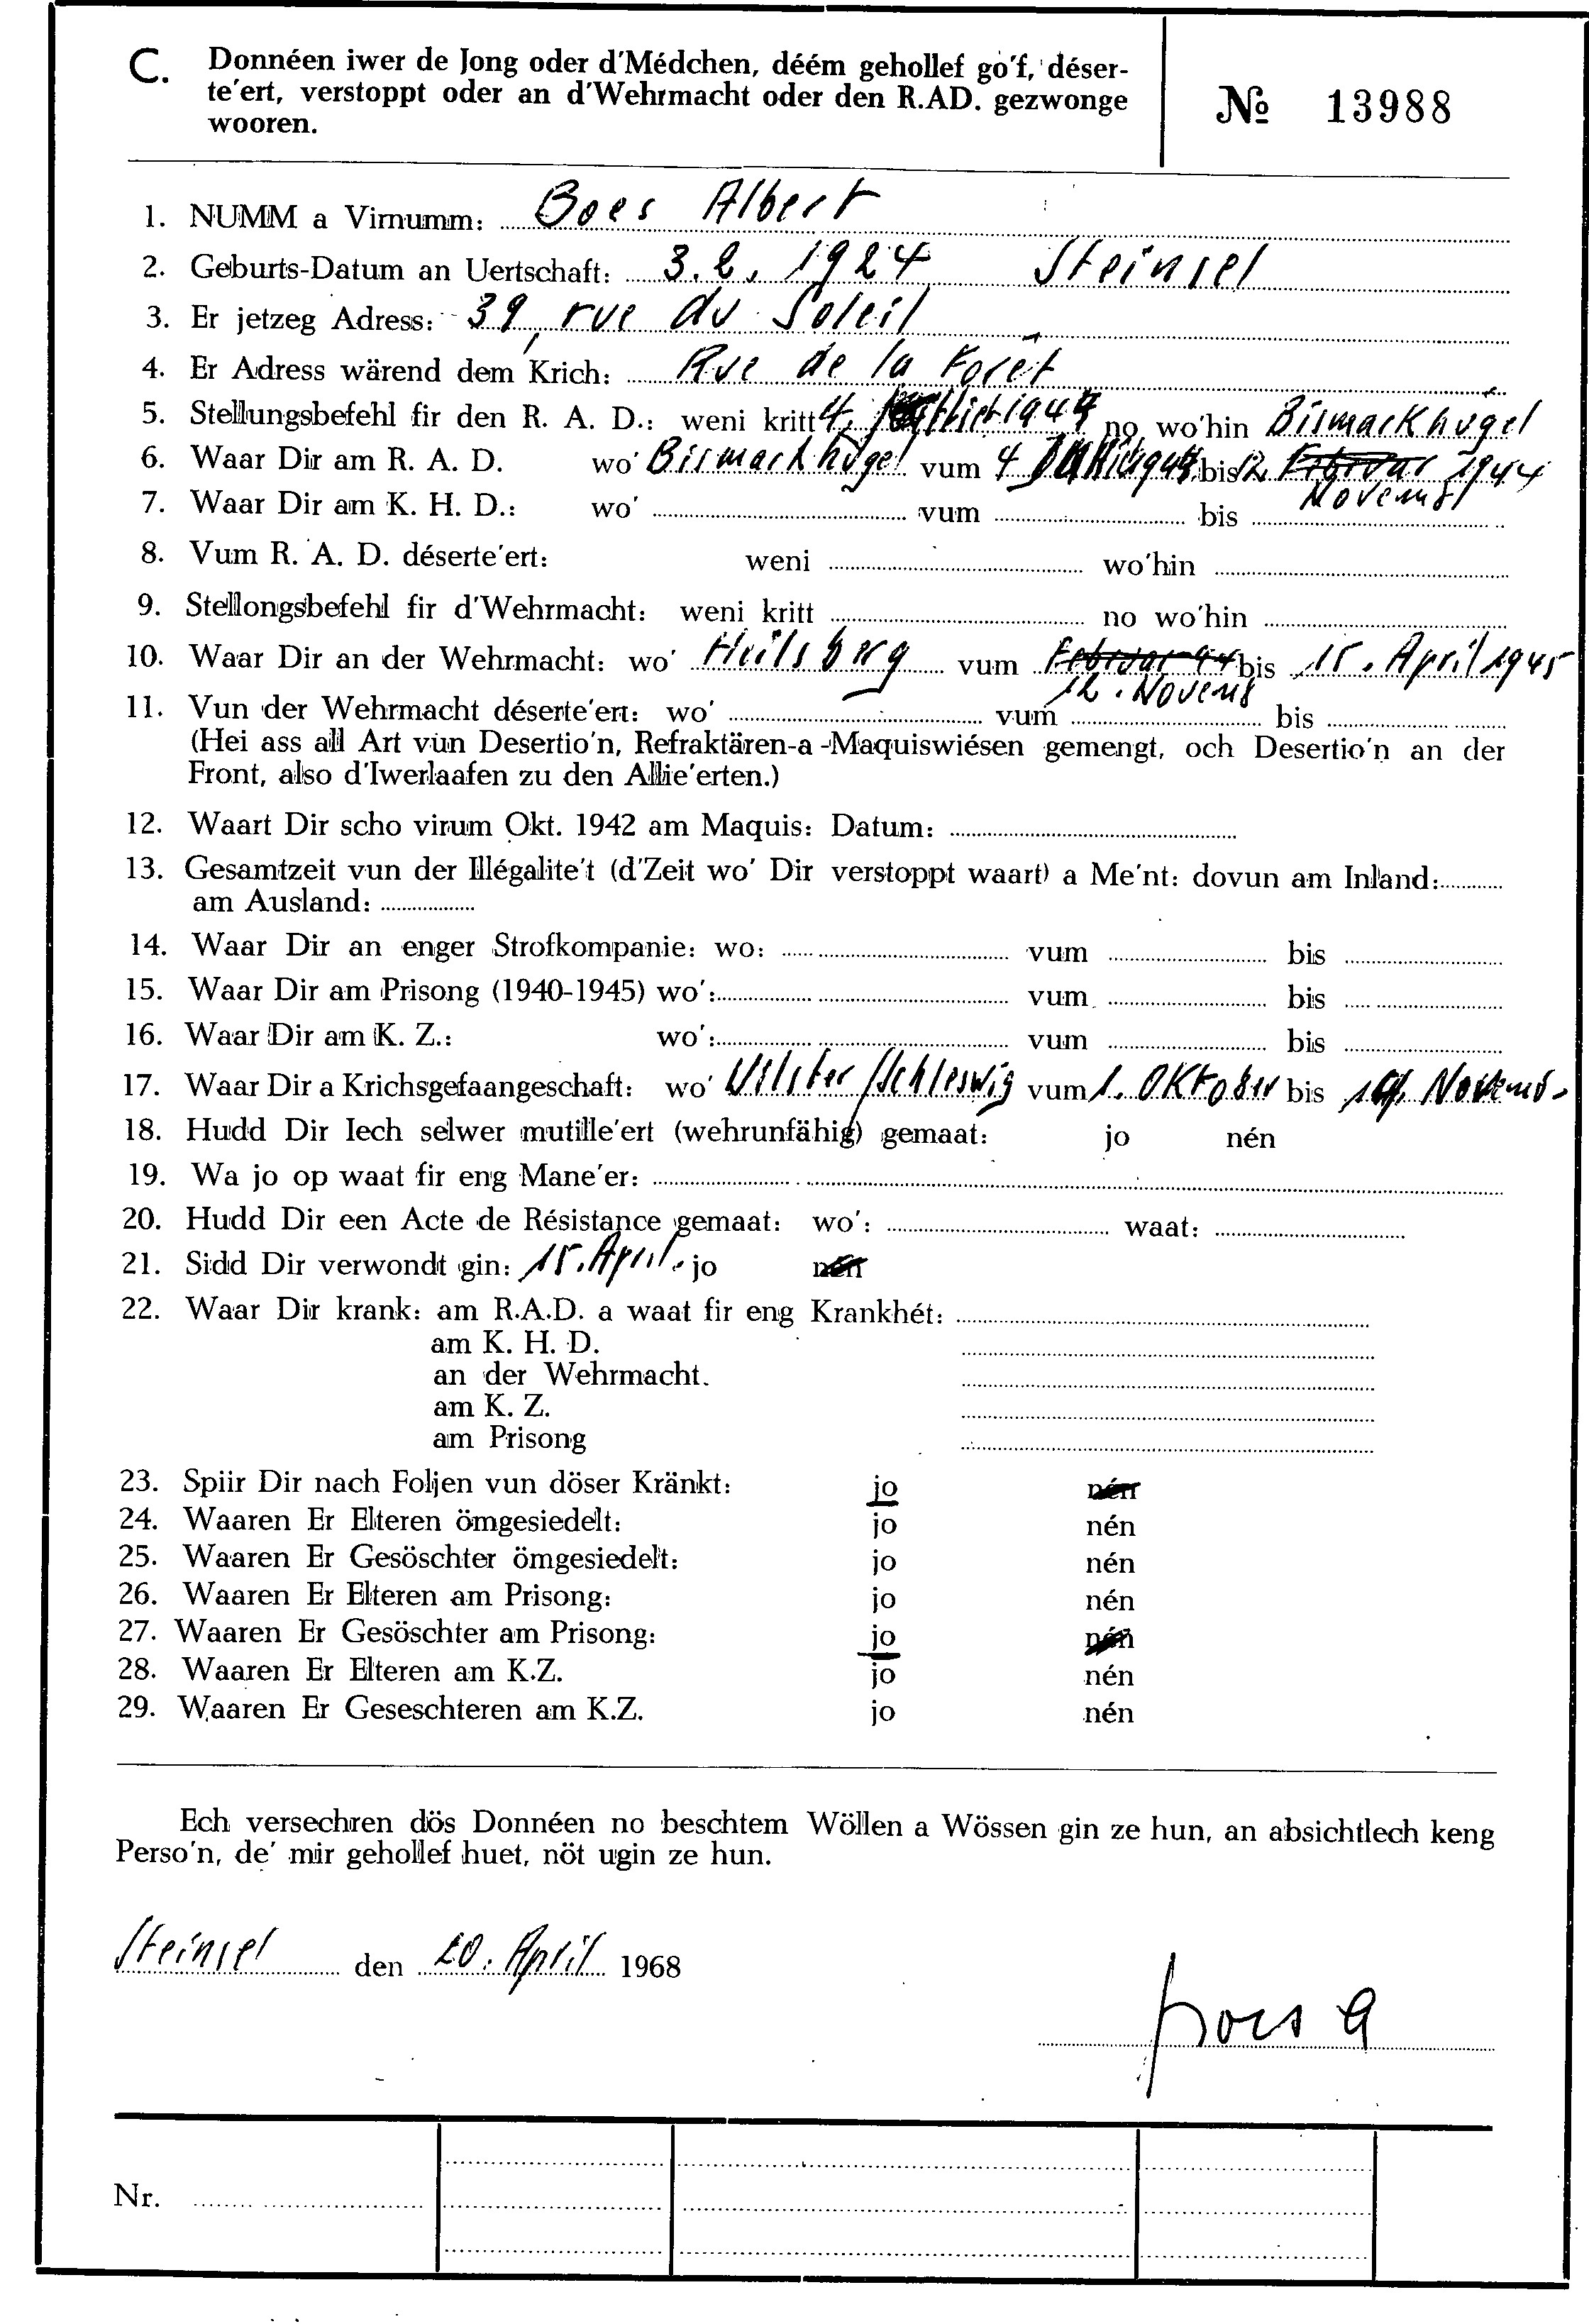 C. Donnéen iwer de Jong oder d'Médchen, déém gehollef go'f, déser-
te'ert, verstoppt oder an d'Wehrmacht oder den R.AD. gezwonge
wooren.
№ 13988
1. NUMM a Virnumm: Boes Albert
2. Geburts-Datum an Uertschaft: 3.2.1924 Steinsel
3. Er jetzeg Adress: 39, rue du Soleil
4. Er Adress wärend dem Krich: Rue de la Foret
5. Stellungsbefehl fir den R. A. D.: weni kritt 4. no wo'hin Bismarkhügel
6. Waar Dir am R. A. D. wo' Bismarkhügel vum 4 bis 12 Februar 1944
Novemb
7. Waar Dir am K. H. D.: wo' vum bis
8. Vum R. A. D. déserte'ert: weni wo'hin
9. Stellongsbefehl fir d'Wehrmacht: weni kritt no wo'hin
10. Waar Dir an der Wehrmacht: wo' Heilsberg vum Februar 44 bis 15. April 1945
12. Novemb
11. Vun der Wehrmacht déserte'ert: wo' vum bis
(Hei ass all Art vun Desertio'n, Refraktären-a-Maquiswiésen gemengt, och Desertio'n an der
Front, also d'Iwerlaafen zu den Allie'erten.)
12. Waart Dir scho virum Okt. 1942 am Maquis: Datum:
13. Gesamtzeit vun der Illégalite't (d'Zeit wo' Dir verstoppt waart) a Me'nt: dovun am Inland:
am Ausland:
14. Waar Dir an enger Strofkompanie: wo: vum bis
15. Waar Dir am Prisong (1940-1945) wo': vum bis
16. Waar Dir am K. Z.: wo': vum bis
17. Waar Dir a Krichsgefaangeschaft: wo' Wilster/Schleswig vum 1. Oktober bis Novemb.
18. Hudd Dir Iech selwer mutille'ert (wehrunfähig) gemaat: jo nén
19. Wa jo op waat fir eng Mane'er:
20. Hudd Dir een Acte de Résistance gemaat: wo': waat:
21. Sidd Dir verwondt gin: 15. April. jo nén
22. Waar Dir krank: am R.A.D. a waat fir eng Krankhét:
am K. H. D.
an der Wehrmacht.
am K. Z.
am Prisong
23. Spiir Dir nach Foljen vun döser Kränkt: jo nén
24. Waaren Er Elteren ömgesiedelt: jo nén
25. Waaren Er Gesöschter ömgesiedelt: jo nén
26. Waaren Er Elteren am Prisong: jo nén
27. Waaren Er Gesöschter am Prisong: jo nén
28. Waaren Er Elteren am K.Z. jo nén
29. Waaren Er Geseschteren am K.Z. jo nén
Ech versechren dös Donnéen no beschtem Wöllen a Wössen gin ze hun, an absichtlech keng
Perso'n, de' mir gehollef huet, nöt ugin ze hun.
Steinsel den 20. April 1968
Boes A
Nr.